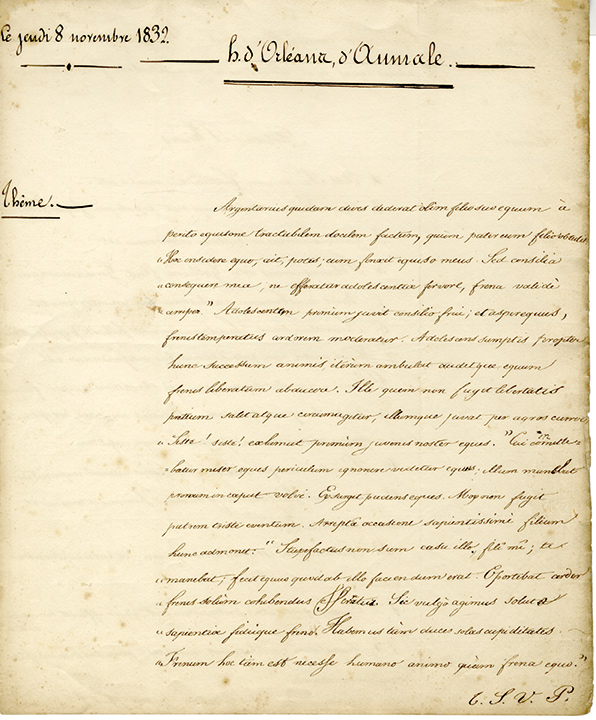 Le jeudi 8 novembre 1832.
h. d'Orléans, d'Aumale.
Thème.
Argentarius quidam dives dederat olim filio suo equum à
perito equisone tractabilem docilem factum, quem pater cum filio
"Hoc considere equo, ait, potes; eum finxit equiso meus. Sed consilia
"consequere mea, ne efferatur adolescentiæ fervore, frena validè
Adolescentem primùm juvit consilio frui; et asper eques,
frenis temperatius ardorem moderatur. Adolescens sumptis propter
hunc successum animis, iterùm ambulat audetque equum
frenis liberatum abducere. Ille quem non fugit libertatis
pretium salit atque circumagitur, illumque juvat per agros currere
"Siste! siste! exclamat primùm juvenis noster eques."
miser eques periculum ignorare videtur equus; illum
pronum in caput volvi. Exsurgit pudens eques. Mox non fugit
patrem triste eventum. Arreptâ occasione sapientissimè filium
hunc admonuit: "Stupefactus non sum casu illo, fili mi; te
"manebat, fecit equus quod ab illo faciendum erat. Oportebat ardor
"frenis solùm cohibendus Sic vulgò agimus soluto
"sapientiæ fidique freno. Habemus tùm duces solas cupiditates.
"Frenum hoc tàm est necesse humano animo quàm frena equo."
T. S. V. P.